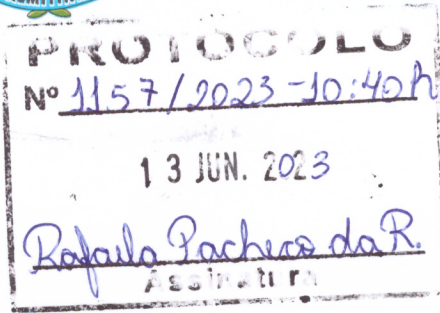 PROTOCOLO
Nº 1157/2023-10:40h
13 JUN. 2023
Rafaela Pacheco da R.
Assinatura